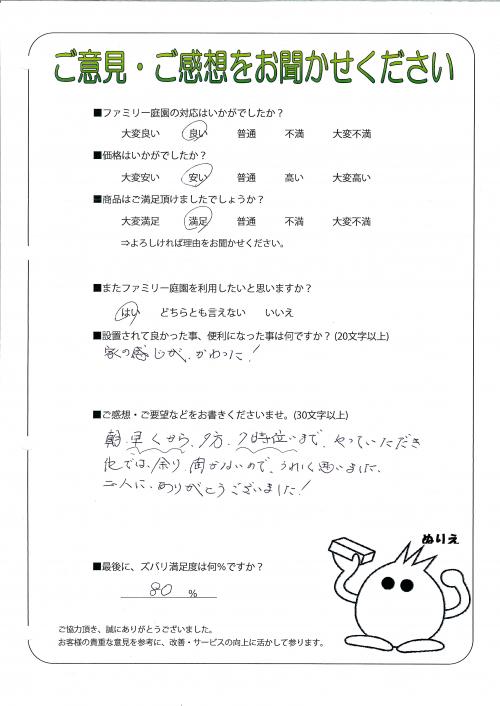 ご意見・ご感想をお聞かせください
■ファミリー庭園の対応はいかがでしたか？
大変良い 良い 普通 不満 大変不満
■価格はいかがでしたか？
大変安い 安い 普通 高い 大変高い
■商品はご満足頂けましたでしょうか？
大変満足 満足 普通 不満 大変不満
⇒よろしければ理由をお聞かせください。
■またファミリー庭園を利用したいと思いますか？
はい どちらとも言えない いいえ
■設置されて良かった事、便利になった事は何ですか？(20文字以上)
家の感じが、かわった！
■ご感想・ご要望などをお書きくださいませ。(30文字以上)
朝、早くから、夕方、7時位いまで、やっていただき
他では、余り、聞かないので、うれしく思いました。
二人に、ありがとうございました！
ぬりえ
■最後に、ズバリ満足度は何％ですか？
80 %
ご協力頂き、誠にありがとうございました。
お客様の貴重な意見を参考に、改善・サービスの向上に活かして参ります。